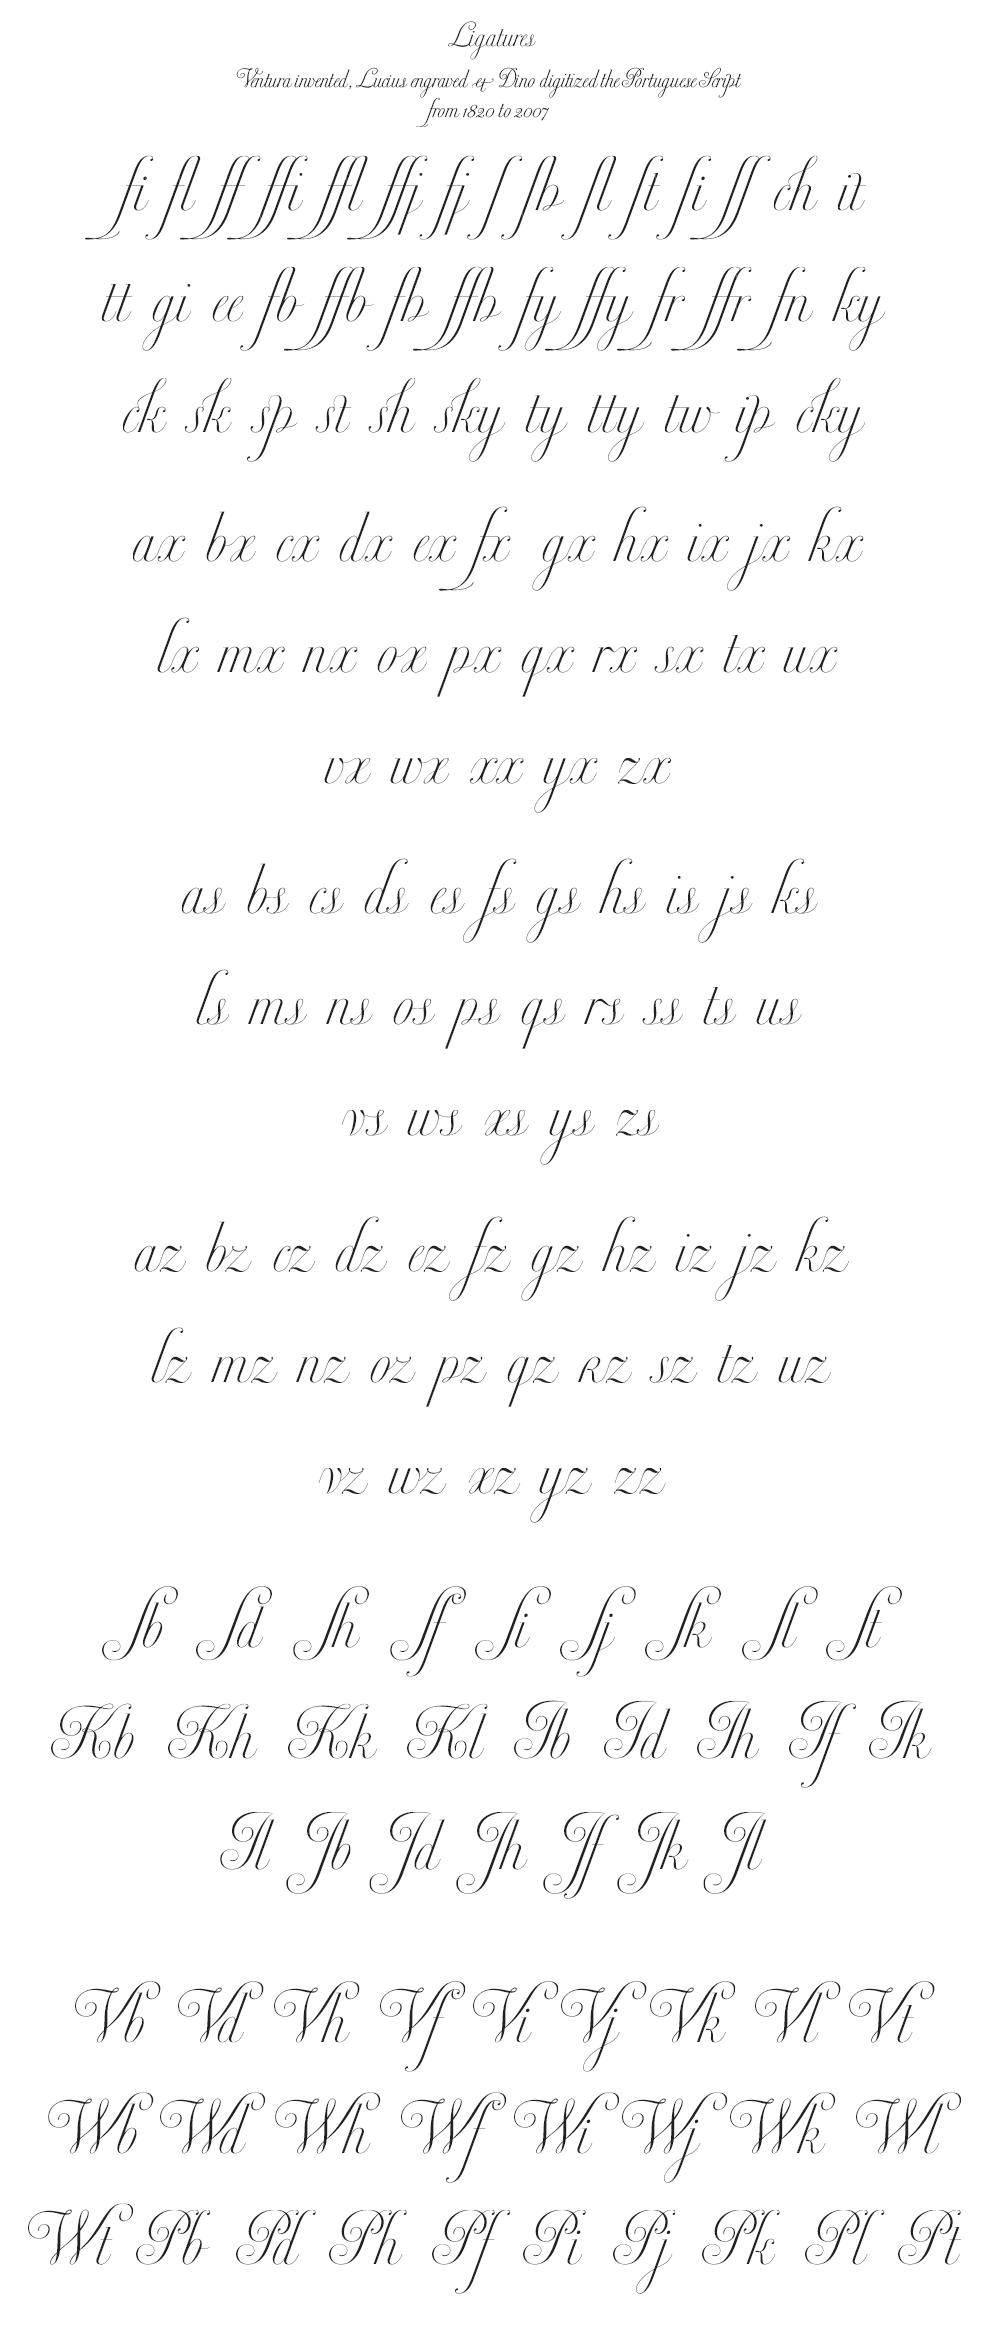 Ligatures
Ventura invented, Lucius engraved & Dino digitized the Portuguese Script
from 1820 to 2007
fi fl ff ffi ffl ffj fj ſ ſb ſl ſt ſi ſſ ch it
tt gi ee fb ffb fh ffh fy ffy fr ffr fn ky
ck sk sp st sh sky ty tty tw ip cky
ax bx cx dx ex fx gx hx ix jx kx
lx mx nx ox px qx rx sx tx ux
vx wx xx yx zx
as bs cs ds es fs gs hs is js ks
ls ms ns os ps qs rs ss ts us
vs ws xs ys zs
az bz cz dz ez fz gz hz iz jz kz
lz mz nz oz pz qz rz sz tz uz
vz wz xz yz zz
Sb Sd Sh Sf Si Sj Sk Sl St
Kb Kh Kk Kl Ib Id Ih If Ik
Il Jb Jd Jh Jf Jk Jl
Vb Vd Vh Vf Vi Vj Vk Vl Vt
Wb Wd Wh Wf Wi Wj Wk Wl
Wt Pb Pd Ph Pf Pi Pj Pk Pl Pt